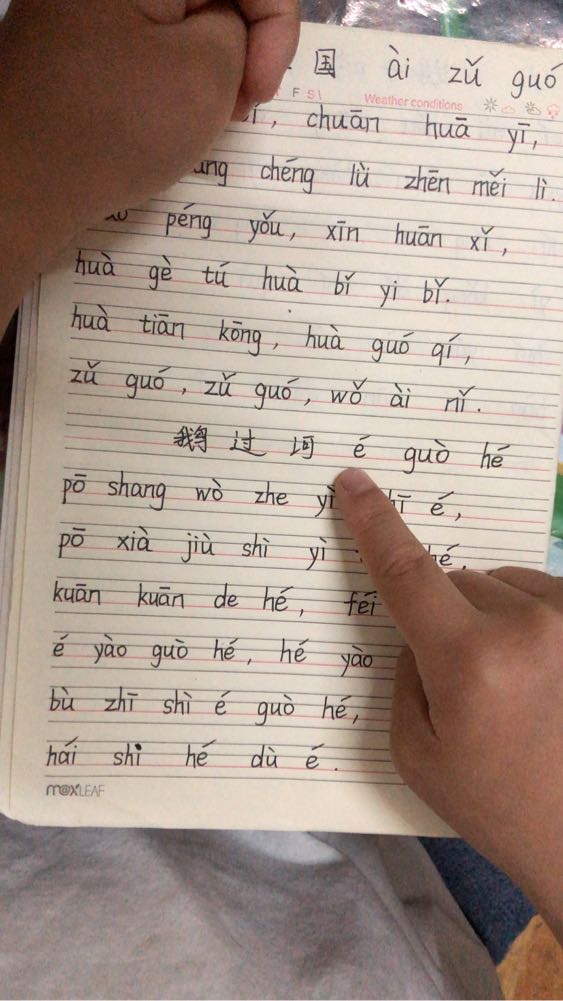 国 ài zǔ guó
F S
Weather conditions
chuān huā yī,
chéng lù zhēn měi lì.
péng yǒu, xīn huān xǐ,
huà gè tú huà bǐ yi bǐ.
huà tiān kōng, huà guó qí,
zǔ guó, zǔ guó, wǒ ài nǐ.
鹅 过 河 é guò hé
pō shang wò zhe yì é,
pō xià jiù shì yì hé.
kuān kuān de hé, féi
é yào guò hé, hé yào
bù zhī shì é guò hé,
hái shi hé dù é.
m@xLEAF